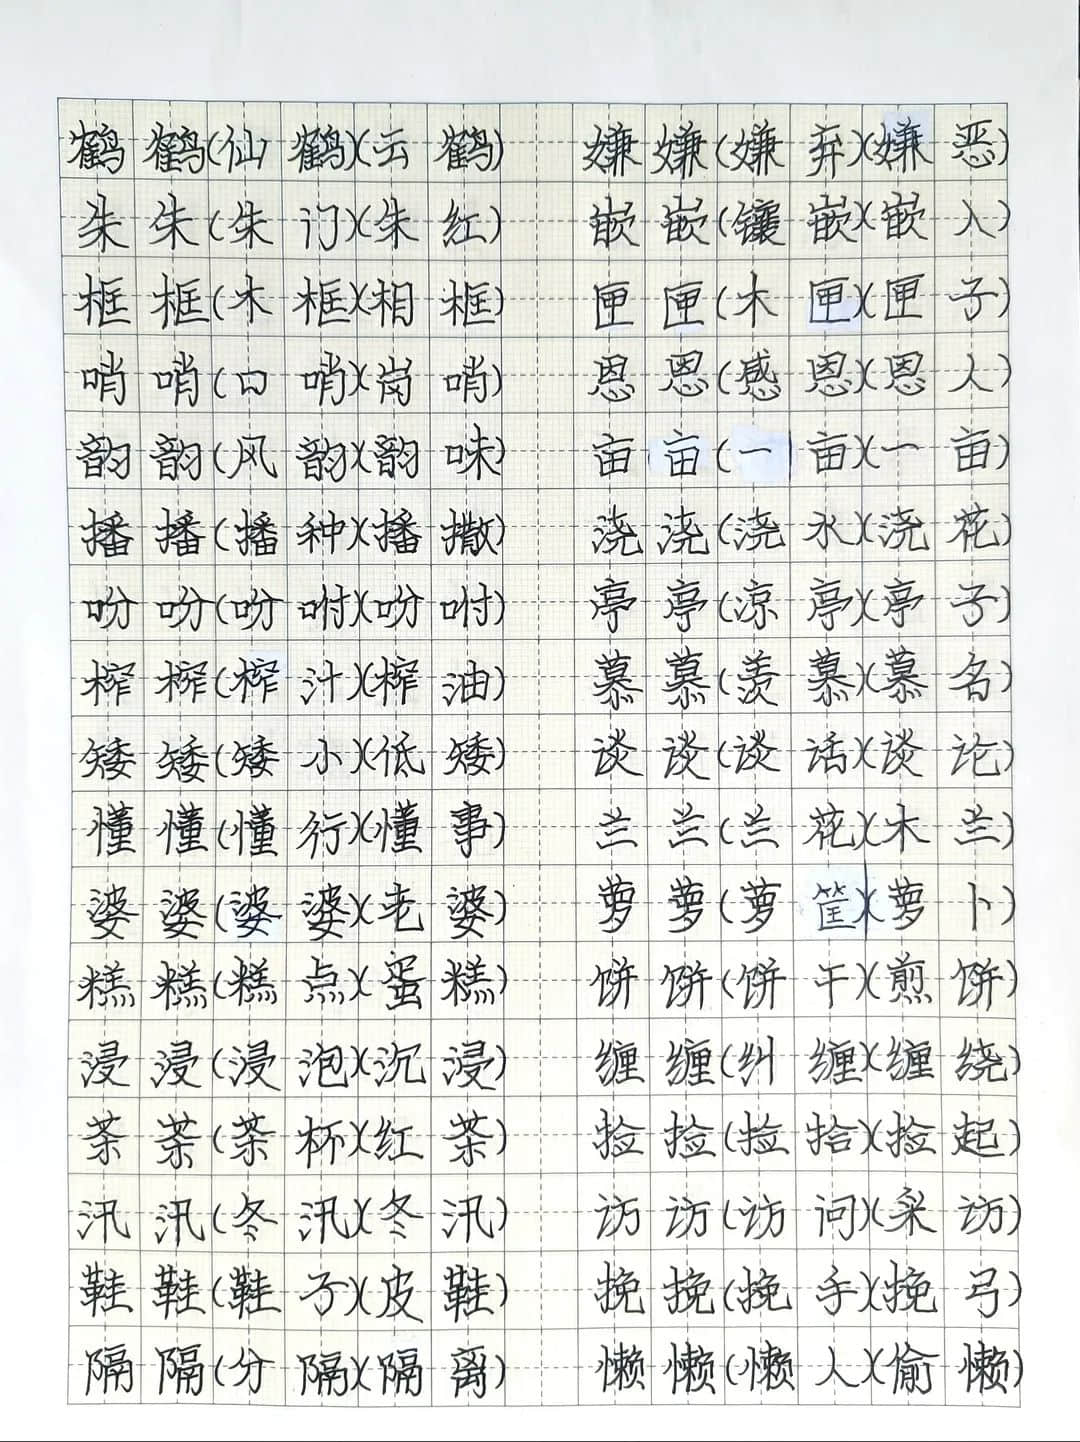 鹤 鹤(仙 鹤)(云 鹤) 嫌 嫌(嫌 弃)(嫌 恶)
朱 朱(朱 门)(朱 红) 嵌 嵌(镶 嵌)(嵌 入)
框 框(木 框)(相 框) 匣 匣(木 匣)(匣 子)
哨 哨(口 哨)(岗 哨) 恩 恩(感 恩)(恩 人)
韵 韵(风 韵)(韵 味) 亩 亩(一 亩)(一 亩)
播 播(播 种)(播 撒) 浇 浇(浇 水)(浇 花)
吩 吩(吩 咐)(吩 咐) 亭 亭(凉 亭)(亭 子)
榨 榨(榨 汁)(榨 油) 慕 慕(羡 慕)(慕 名)
矮 矮(矮 小)(低 矮) 谈 谈(谈 话)(谈 论)
懂 懂(懂 行)(懂 事) 兰 兰(兰 花)(木 兰)
婆 婆(婆 婆)(老 婆) 萝 萝(萝 筐)(萝 卜)
糕 糕(糕 点)(蛋 糕) 饼 饼(饼 干)(煎 饼)
浸 浸(浸 泡)(沉 浸) 缠 缠(纠 缠)(缠 绕)
茶 茶(茶 杯)(红 茶) 捡 捡(捡 拾)(捡 起)
汛 汛(冬 汛)(冬 汛) 访 访(访 问)(采 访)
鞋 鞋(鞋 子)(皮 鞋) 挽 挽(挽 手)(挽 弓)
隔 隔(分 隔)(隔 离) 懒 懒(懒 人)(偷 懒)